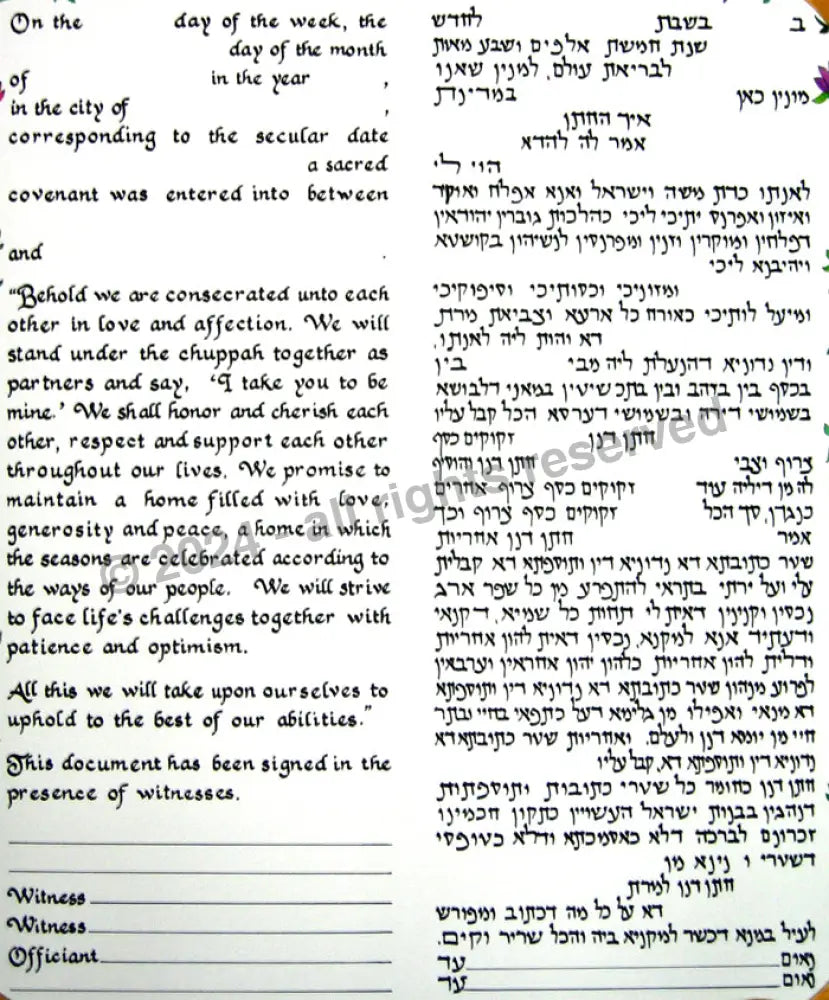 On the day of the week, the
day of the month
of in the year ,
in the city of ,
corresponding to the secular date
a sacred
covenant was entered into between
and .
"Behold we are consecrated unto each
other in love and affection. We will
stand under the chuppah together as
partners and say, 'I take you to be
mine.' We shall honor and cherish each
other, respect and support each other
throughout our lives. We promise to
maintain a home filled with love,
generosity and peace, a home in which
the seasons are celebrated according to
the ways of our people. We will strive
to face life's challenges together with
patience and optimism.
All this we will take upon ourselves to
uphold to the best of our abilities."
This document has been signed in the
presence of witnesses.
Witness
Witness
Officiant
ב בשבת לחדש
שנת חמשת אלפים ושבע מאות
לבריאת עולם, למנין שאנו
מונין כאן במדינת
איך החתן
אמר לה להדא
הוי לי
לאנתו כדת משה וישראל ואנא אפלח ואוקד
ואיזון ואפרנס יתיכי ליכי כהלכות גוברין יהודאין
דפלחין ומוקרין וזנין ומפרנסין לנשיהון בקושטא
ויהיבנא ליכי
ומזוניכי וכסותיכי וסיפוקיכי
ומיעל לותיכי כאורח כל ארעא וצביאת מרת
דא והות ליה לאנתו,
ודין נדוניא דהנעלת ליה מבי בין
בכסף בין בזהב ובין בתכשיטין במאני דלבושא
בשמושי דירה ובשמושי דערסא הכל קבל עליו
חתן דנן זקוקים כסף
צרוף וצבי חתן דנן והוסיף
לה מן דיליה עוד זקוקים כסף צרוף אחרים
כנגדן, סך הכל זקוקים כסף צרוף וכך
אמר חתן דנן אחריות
שטר כתובתא דא נדוניא דין ותוספתא דא קבלית
עלי ועל ירתי בתראי להתפרע מן כל שפר ארג
נכסין וקנינין דאית לי תחות כל שמיא, דקנאי
ודעתיד אנא למקנא, נכסין דאית להון אחריות
ודלית להון אחריות כלהון יהון אחראין וערבאין
לפרוע מנהון שטר כתובתא דא נדוניא דין ותוספתא
דא מנאי ואפילו מן גלימא דעל כתפאי בחיי ובתר
חיי מן יומא דנן ולעלם. ואחריות שטר כתובתא דא
נדוניא דין ותוספתא דא, קבל עליו
חתן דנן כחומר כל שטרי כתובות ותוספתות
דנהגין בבנות ישראל העשויין כתקון חכמינו
זכרונם לברכה דלא כאסמכתא ודלא כטופסי
דשטרי ו נינא מן
חתן דנן למרת
דא על כל מה דכתוב ומפורש
לעיל במנא דכשר למקניא ביה והכל שריר וקים.
נאום עד
נאום עד
© 2024 - all rights reserved